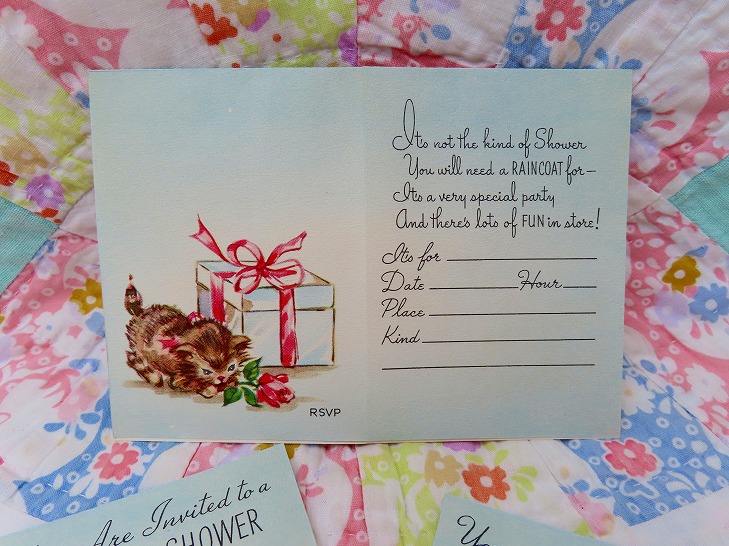 It's not the kind of Shower
You will need a RAINCOAT for—
It's a very special party
And there's lots of FUN in store!
It's for
Date Hour
Place
Kind
RSVP
Are Invited to a
SHOWER